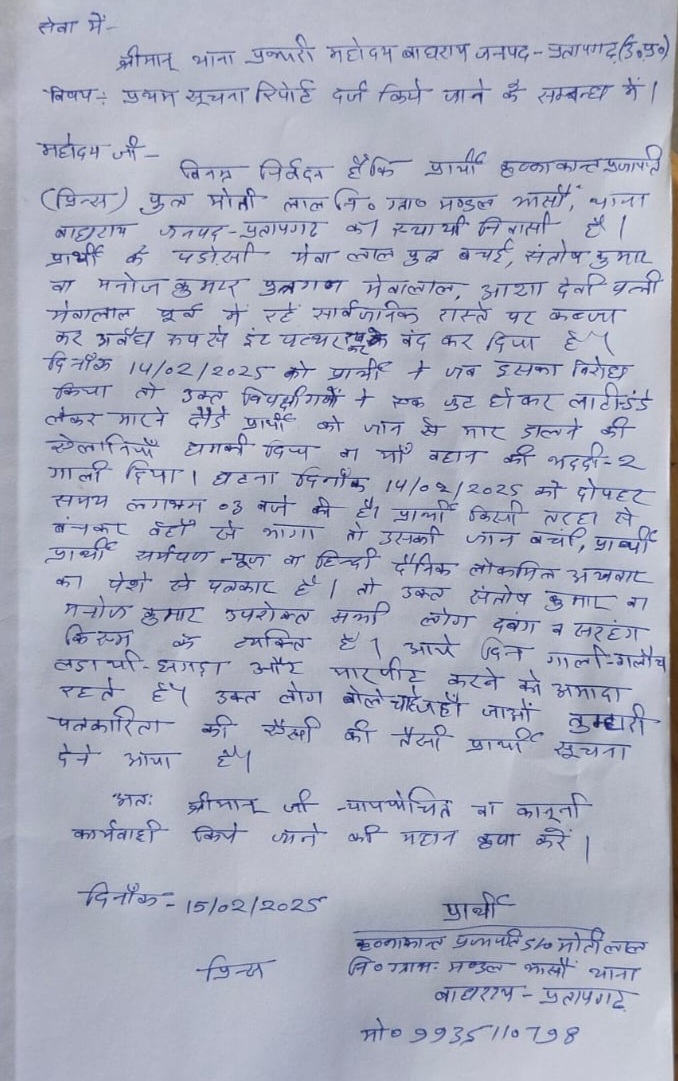 सेवा में-
श्रीमान् थाना प्रभारी महोदय बाघराय जनपद-प्रतापगढ़(उ०प्र०)
विषय:- प्रथम सूचना रिपोर्ट दर्ज किये जाने के सम्बन्ध में।
महोदय जी-
विनम्र निवेदन है कि प्रार्थी कृष्णाकान्त प्रजापति
(प्रिन्स) पुत्र मोती लाल नि० ग्रा० मण्डल भासौं, थाना
बाघराय जनपद-प्रतापगढ का स्थायी निवासी है।
प्रार्थी के पडोसी मेवा लाल पुत्र बचई, संतोष कुमार
वा मनोज कुमार पुत्रगण मेवालाल, आशा देवी पत्नी
मेवालाल पूर्व में रहें सार्वजनिक रास्ते पर कब्जा
कर अवैध रूप से इंट पत्थर के बंद कर दिया है।
दिनाँक 14/02/2025 को प्रार्थी ने जब इसका विरोध
किया तो उक्त विपक्षीगणों ने एक जुट होकर लाठीडंडे
लेकर मारने दौडे प्रार्थी को जान से मार डालने की
खेलानियाँ धमकी दिया वा माँ बहान की भददी-2
गाली दिया। घटना दिनाँक 14/02/2025 को दोपहर
समय लगभग 03 बजे की है। प्रार्थी किसी तरहा से
बंचकर वहाँ से भागा तो उसकी जान बची, प्रार्थी
प्रार्थी सर्मपण न्यूज वा हिन्दी दैनिक लोकमित्र अखबार
का पेशे से पत्रकार है। तो उक्त संतोष कुमार वा
मनोज कुमार उपरोक्त सभी लोग दबंग व सरहंग
किस्म के व्यक्ति है। आये दिन गाली-गलौच
लडायी-झगडा और मारपीट करने को अमादा
रहते है। उक्त लोग बोले चाहे जहाँ जाओं तुम्हारी
पत्रकारिता की ऐसी की तैसी प्रार्थी सूचना
देने आया है।
अतः श्रीमान् जी न्यायोचित वा कानूनी
कार्यवाही किये जाने की महान कृपा करें।
दिनाँक-15/02/2025
प्रार्थी
कृष्णाकान्त प्रजापति S/o मोती लाल
प्रिन्स
नि० ग्राम: मण्डल भासौं थाना
बाघराय-प्रतापगढ़
मो० 9935110798